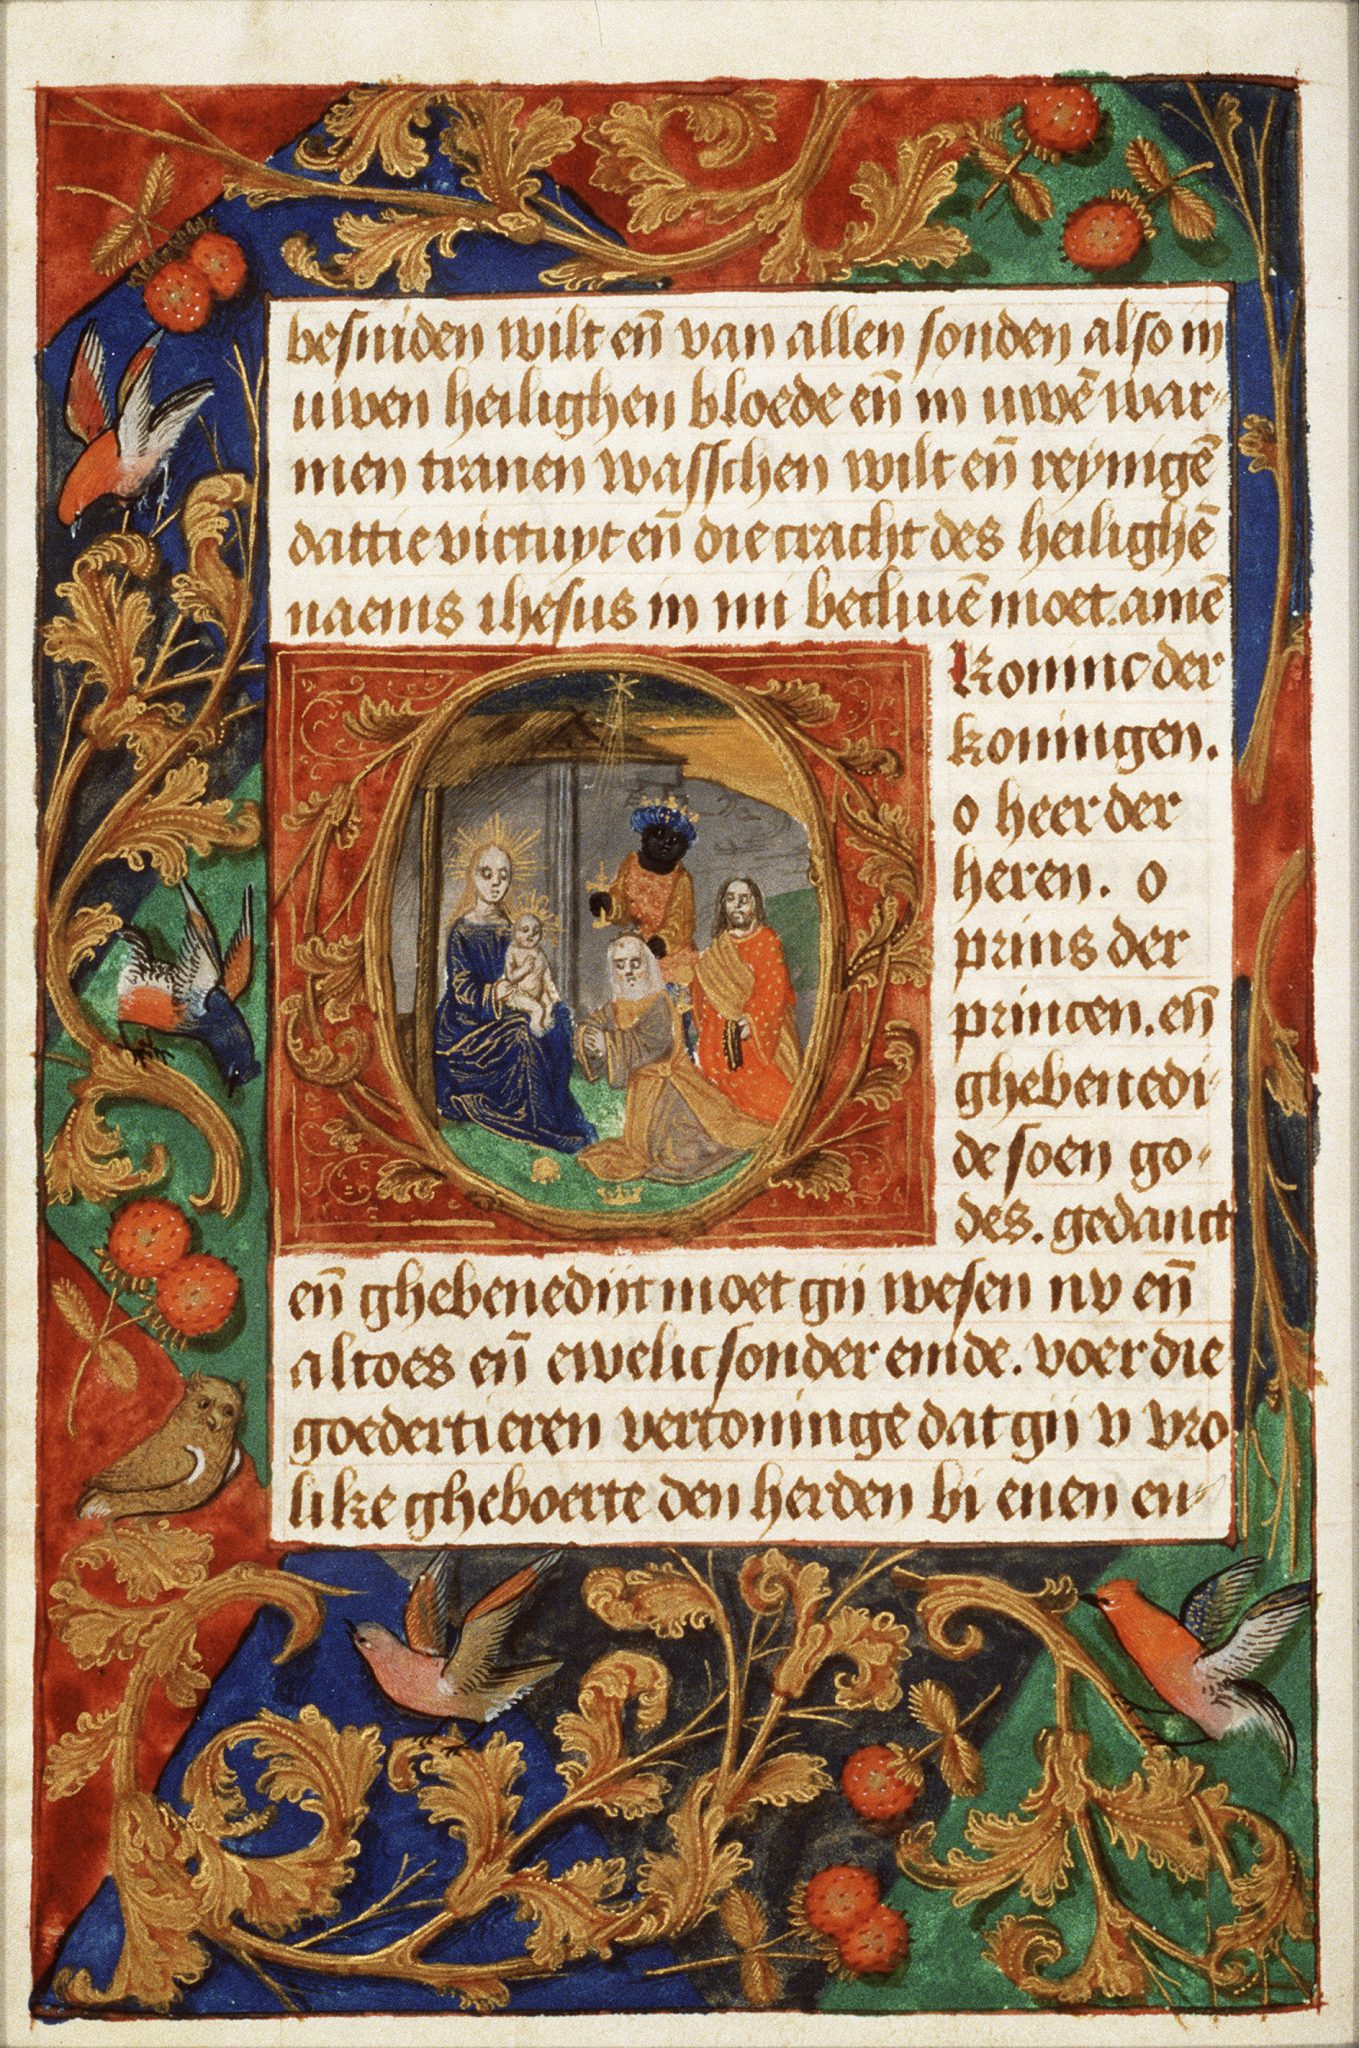 besniden wilt en̄ van allen sonden also in
uwen heilighen bloede en̄ in uwē war-
men tranen wasschen wilt en̄ reynigē
dattie virtuyt en̄ die cracht des heilighē
naems ihesus in mi becliuē moet. amē
O
Koninc der
koningen.
o heer der
heren. o
prins der
princen. en̄
ghebenedi-
de soen go-
des. gedanct
en̄ ghebenediit moet gij wesen nv en̄
altoes en̄ ewelic sonder einde. voer die
goedertieren vertoninge dat gij v vro
like gheboerte den herden bi enen en-